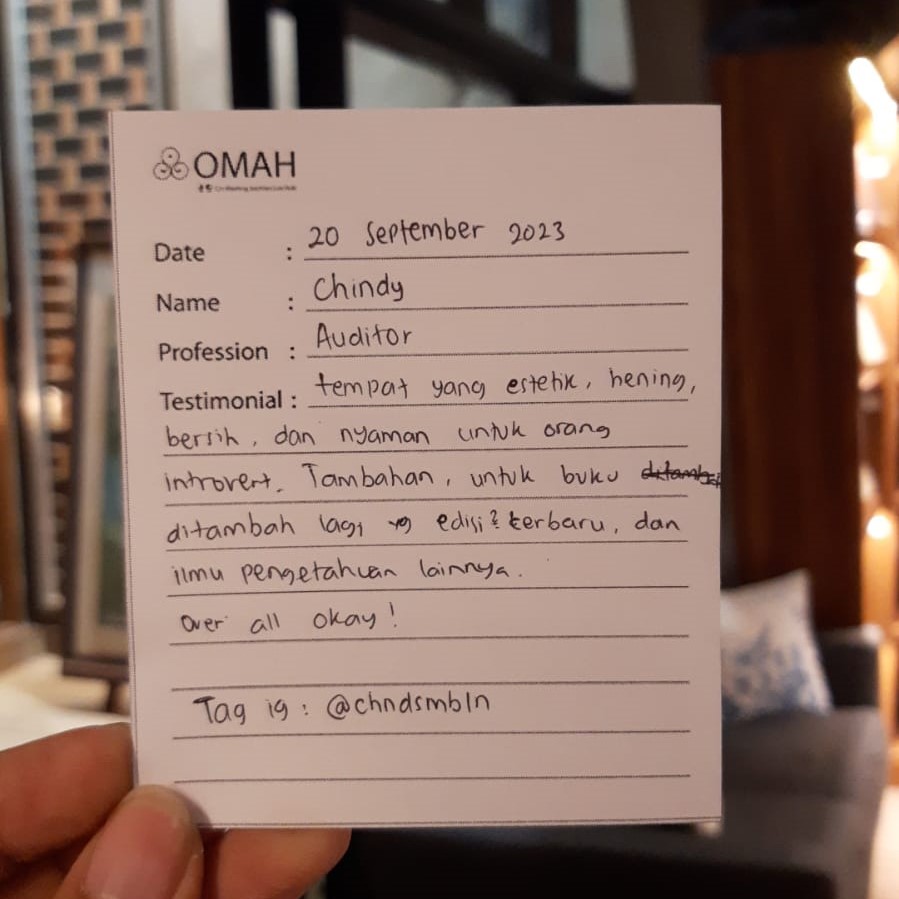 OMAH
Date : 20 September 2023
Name : Chindy
Profession : Auditor
Testimonial : tempat yang estetik, hening,
bersih, dan nyaman untuk orang
introvert. Tambahan, untuk buku
ditambah lagi yg edisi2 terbaru, dan
ilmu pengetahuan lainnya.
Over all okay!
Tag ig : @chndsmbln